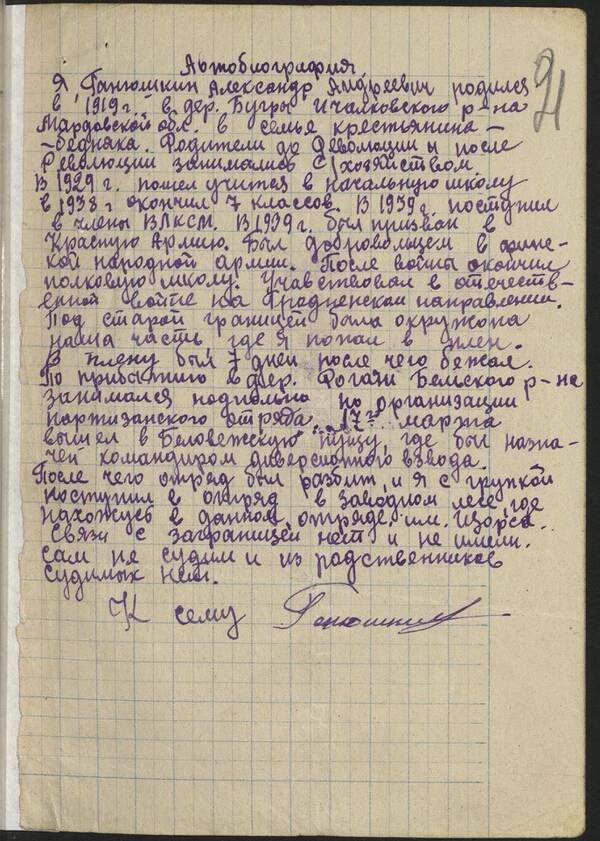 Автобиография
Я, Ганюшкин Александр Андреевич родился
в 1919 г. в дер. Бугры Ичалковского р-на
Мардовской обл. в семье крестьянина-
-бедняка. Родители до Революции и после
Революции занимались с/хозяйством.
В 1929 г. пошел учится в начальную школу
в 1938 г окончил 7 классов. В 1939 г. поступил
в члены ВЛКСМ. В 1939 г. был призван в
Красную Армию. Был добровольцем в фин-
кой народной армии. После войны окончил
полковую школу. Учавствовал в отечеств-
енной войне на Гродненском направлении.
Под старой границей была окружона
наша часть, где я попал в плен.
В плену был 7 дней после чего бежал.
По прибытию в дер. Рогази Бельского р-на
занимался подпольно по организации
партизанского отряда. 17го марта
вышел в Беловежскую пущу, где был назна-
чен командиром диверсионного взвода.
После чего отряд был разбит, и я с групкой
поступил в отряд в заводном лесе, где
нахожусь в данном отряде им. Щорса.
Связи с заграницей нет и не имели.
сам не судим и из родственников
судимых нет.
К сему Ганюшкин
21